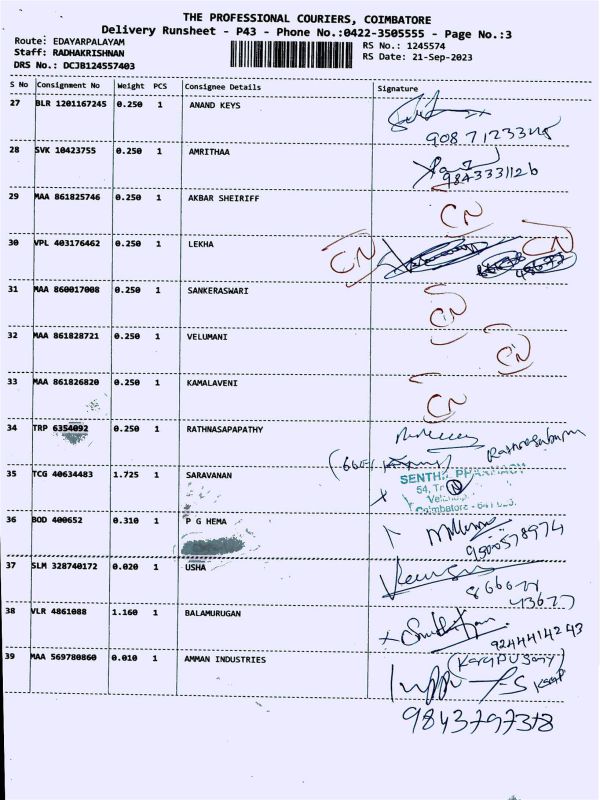 THE PROFESSIONAL COURIERS, COIMBATORE
Delivery Runsheet - P43 - Phone No.:0422-3505555 - Page No.:3
Route: EDAYARPALAYAM
RS No.: 1245574
Staff: RADHAKRISHNAN
RS Date: 21-Sep-2023
DRS No.: DCJB124557403
S No Consignment No Weight PCS Consignee Details Signature
27 BLR 1201167245 0.250 1 ANAND KEYS
28 SVK 10423755 0.250 1 AMRITHAA
9843331126
29 MAA 861825746 0.250 1 AKBAR SHEIRIFF
CN
30 VPL 403176462 0.250 1 LEKHA
CN CN
31 MAA 860017008 0.250 1 SANKERASWARI
CN
32 MAA 861828721 0.250 1 VELUMANI
CN
33 MAA 861826820 0.250 1 KAMALAVENI
CN
34 TRP 6354092 0.250 1 RATHNASAPAPATHY
35 TCG 40634483 1.725 1 SARAVANAN
54, Tr
Coimbatore
36 BOD 400652 0.310 1 P G HEMA
9500578974
37 SLM 328740172 0.020 1 USHA
43677
38 VLR 4861088 1.160 1 BALAMURUGAN
9244414243
39 MAA 569780860 0.010 1 AMMAN INDUSTRIES